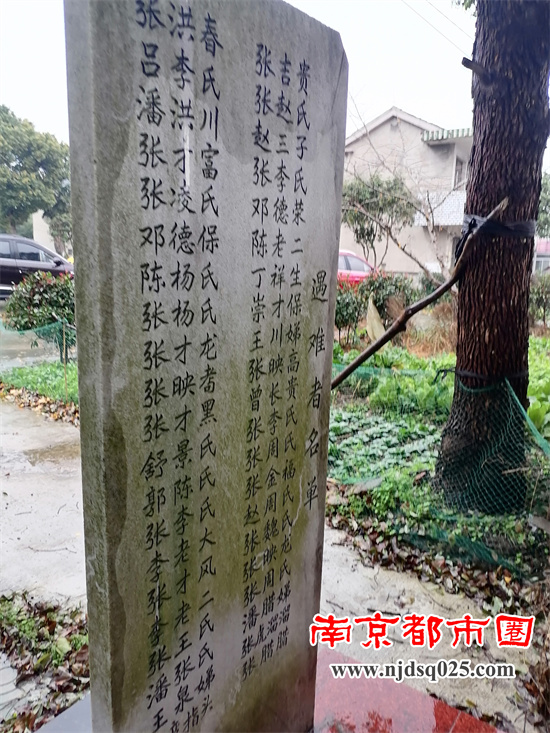 遇难者名单
张吉贵
张赵氏
赵三子
张李氏
邓德荣
陈老二
丁祥生
崇才保
王川娣
张映高
曾长贵
张李氏
张周氏
张金福
赵周氏
张魏氏
张映龙
张周氏
潘腊娣
张虎溜
张腊
张洪春
吕李氏
潘洪川
张才富
张凌氏
邓德保
陈杨氏
张杨氏
张才龙
张映者
张才黑
舒景氏
郭陈氏
张李氏
李老大
张才风
李老二
张王氏
潘张氏
王泉娣
指头
南京都市圈
www.njdsq025.com